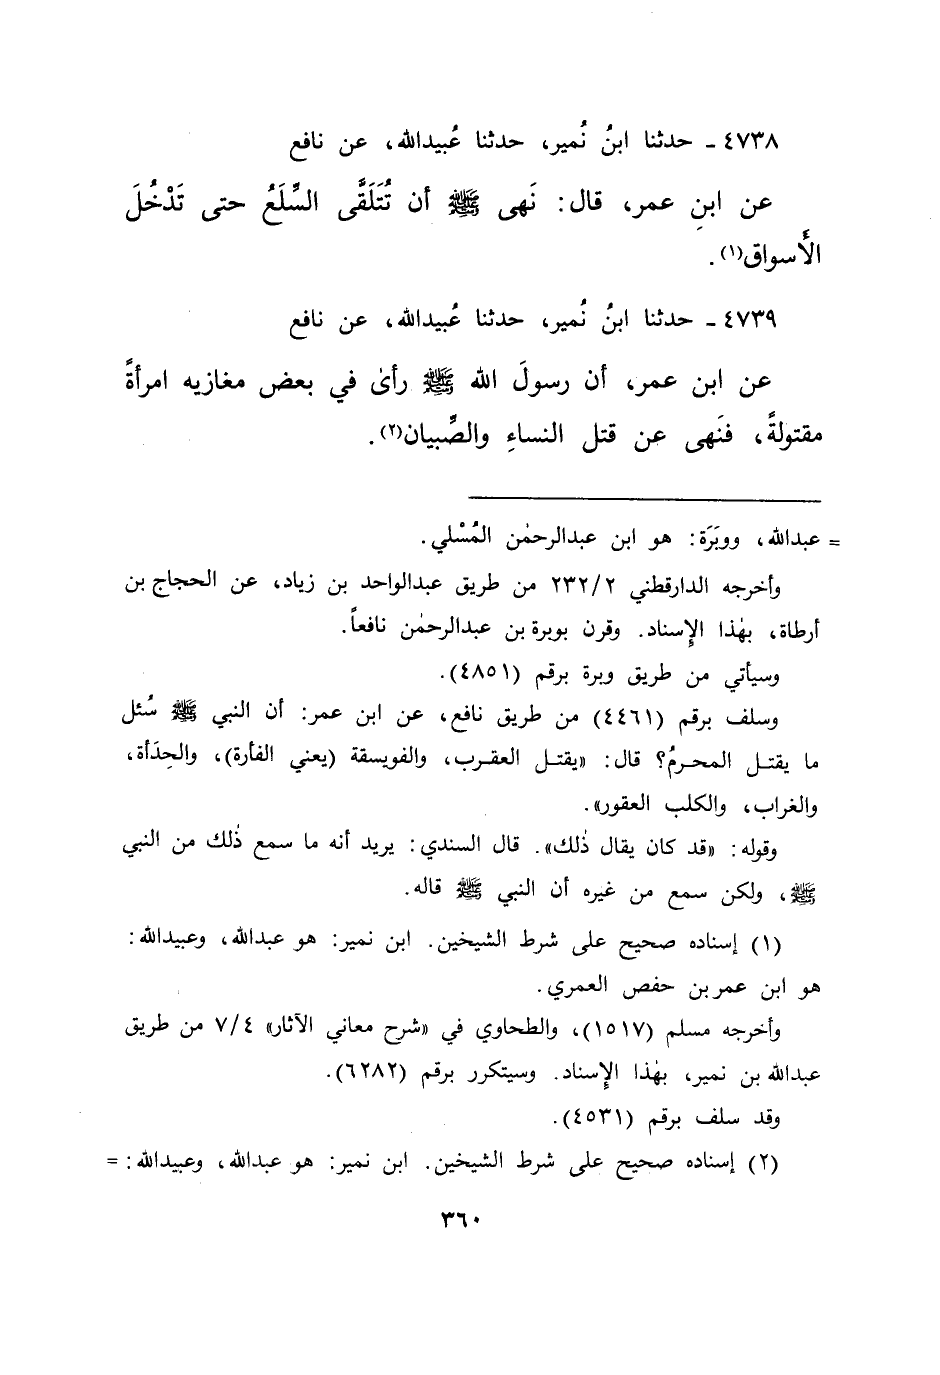 ٤٧٣٨ - حدثنا ابنُ نُمير، حدثنا عُبيدالله، عن نافع
عن ابنِ عمر، قال: نَهى ﷺ أن تُتَلَقَّى السِّلَعُ حتى تَدْخُلَ
الأَسواق(١).
٤٧٣٩ - حدثنا ابنُ نُمير، حدثنا عُبيدالله، عن نافع
عن ابن عمر، أن رسولَ الله ﷺ رأىٰ في بعض مغازيه امرأةً
مقتولةً، فنَهى عن قتل النساءِ والصِّبيان(٢).
= عبدالله، ووبَرَة: هو ابن عبدالرحمٰن المُسْلي.
وأخرجه الدارقطني ٢٣٢/٢ من طريق عبدالواحد بن زياد، عن الحجاج بن
أرطاة، بهٰذا الإِسناد. وقرن بوبرة بن عبدالرحمٰن نافعاً.
وسيأتي من طريق وبرة برقم (٤٨٥١).
وسلف برقم (٤٤٦١) من طريق نافع، عن ابن عمر: أن النبي ﷺ سُئل
ما يقتل المحرمُ؟ قال: «يقتل العقرب، والفويسقة (يعني الفأرة)، والحِدَأة،
والغراب، والكلب العقور».
وقوله: «قد كان يقال ذٰلك». قال السندي: يريد أنه ما سمع ذٰلك من النبي
ﷺ، ولكن سمع من غيره أن النبي ﷺ قاله.
(١) إسناده صحيح على شرط الشيخين. ابن نمير: هو عبدالله، وعبيدالله:
هو ابن عمر بن حفص العمري.
وأخرجه مسلم (١٥١٧)، والطحاوي في «شرح معاني الآثار» ٧/٤ من طريق
عبدالله بن نمير، بهٰذا الإِسناد. وسيتكرر برقم (٦٢٨٢).
وقد سلف برقم (٤٥٣١).
(٢) إسناده صحيح على شرط الشيخين. ابن نمير: هو عبدالله، وعبيدالله: =
٣٦٠